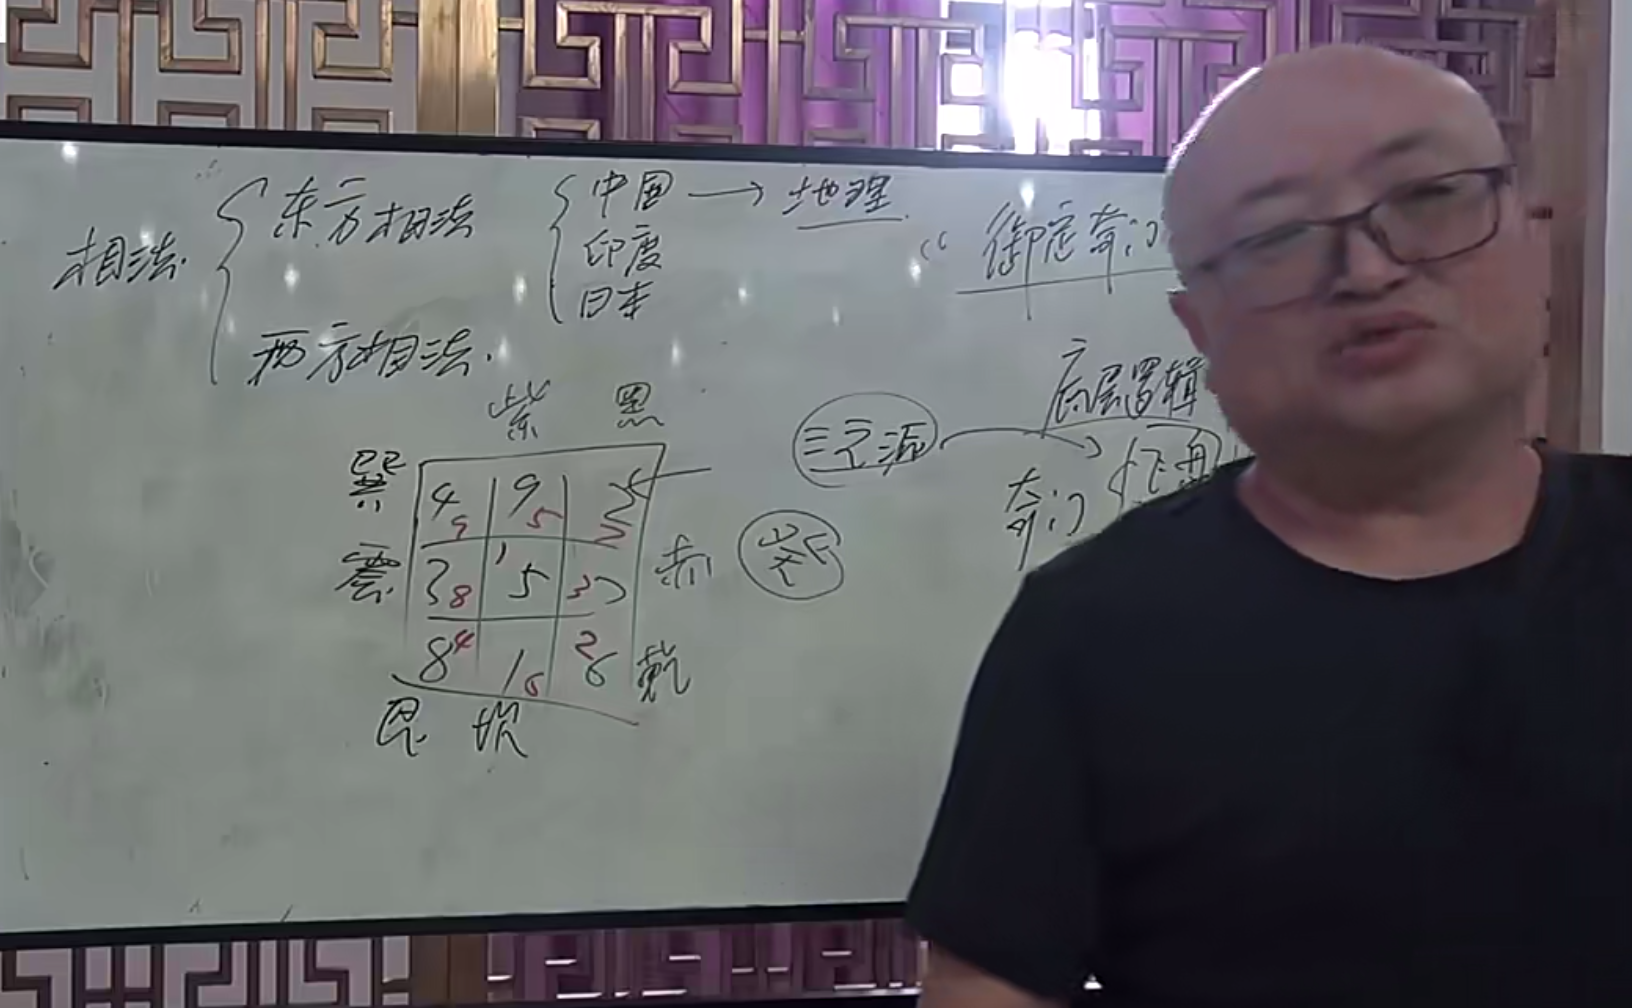 相法.
东方相法
西方相法.
中国 → 地理
印度
日本
“御定奇门
紫 黑
巽 4 9 9 5
震 3 8 1 5 3 赤
8 4 1 6 2 6 乾
艮 坎
三元派
底层逻辑
奇门
飞